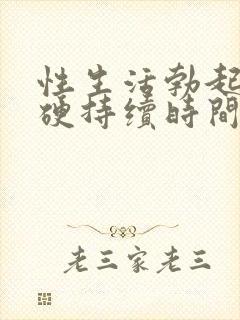 性生活勃起
硬持續時間
老三家老三